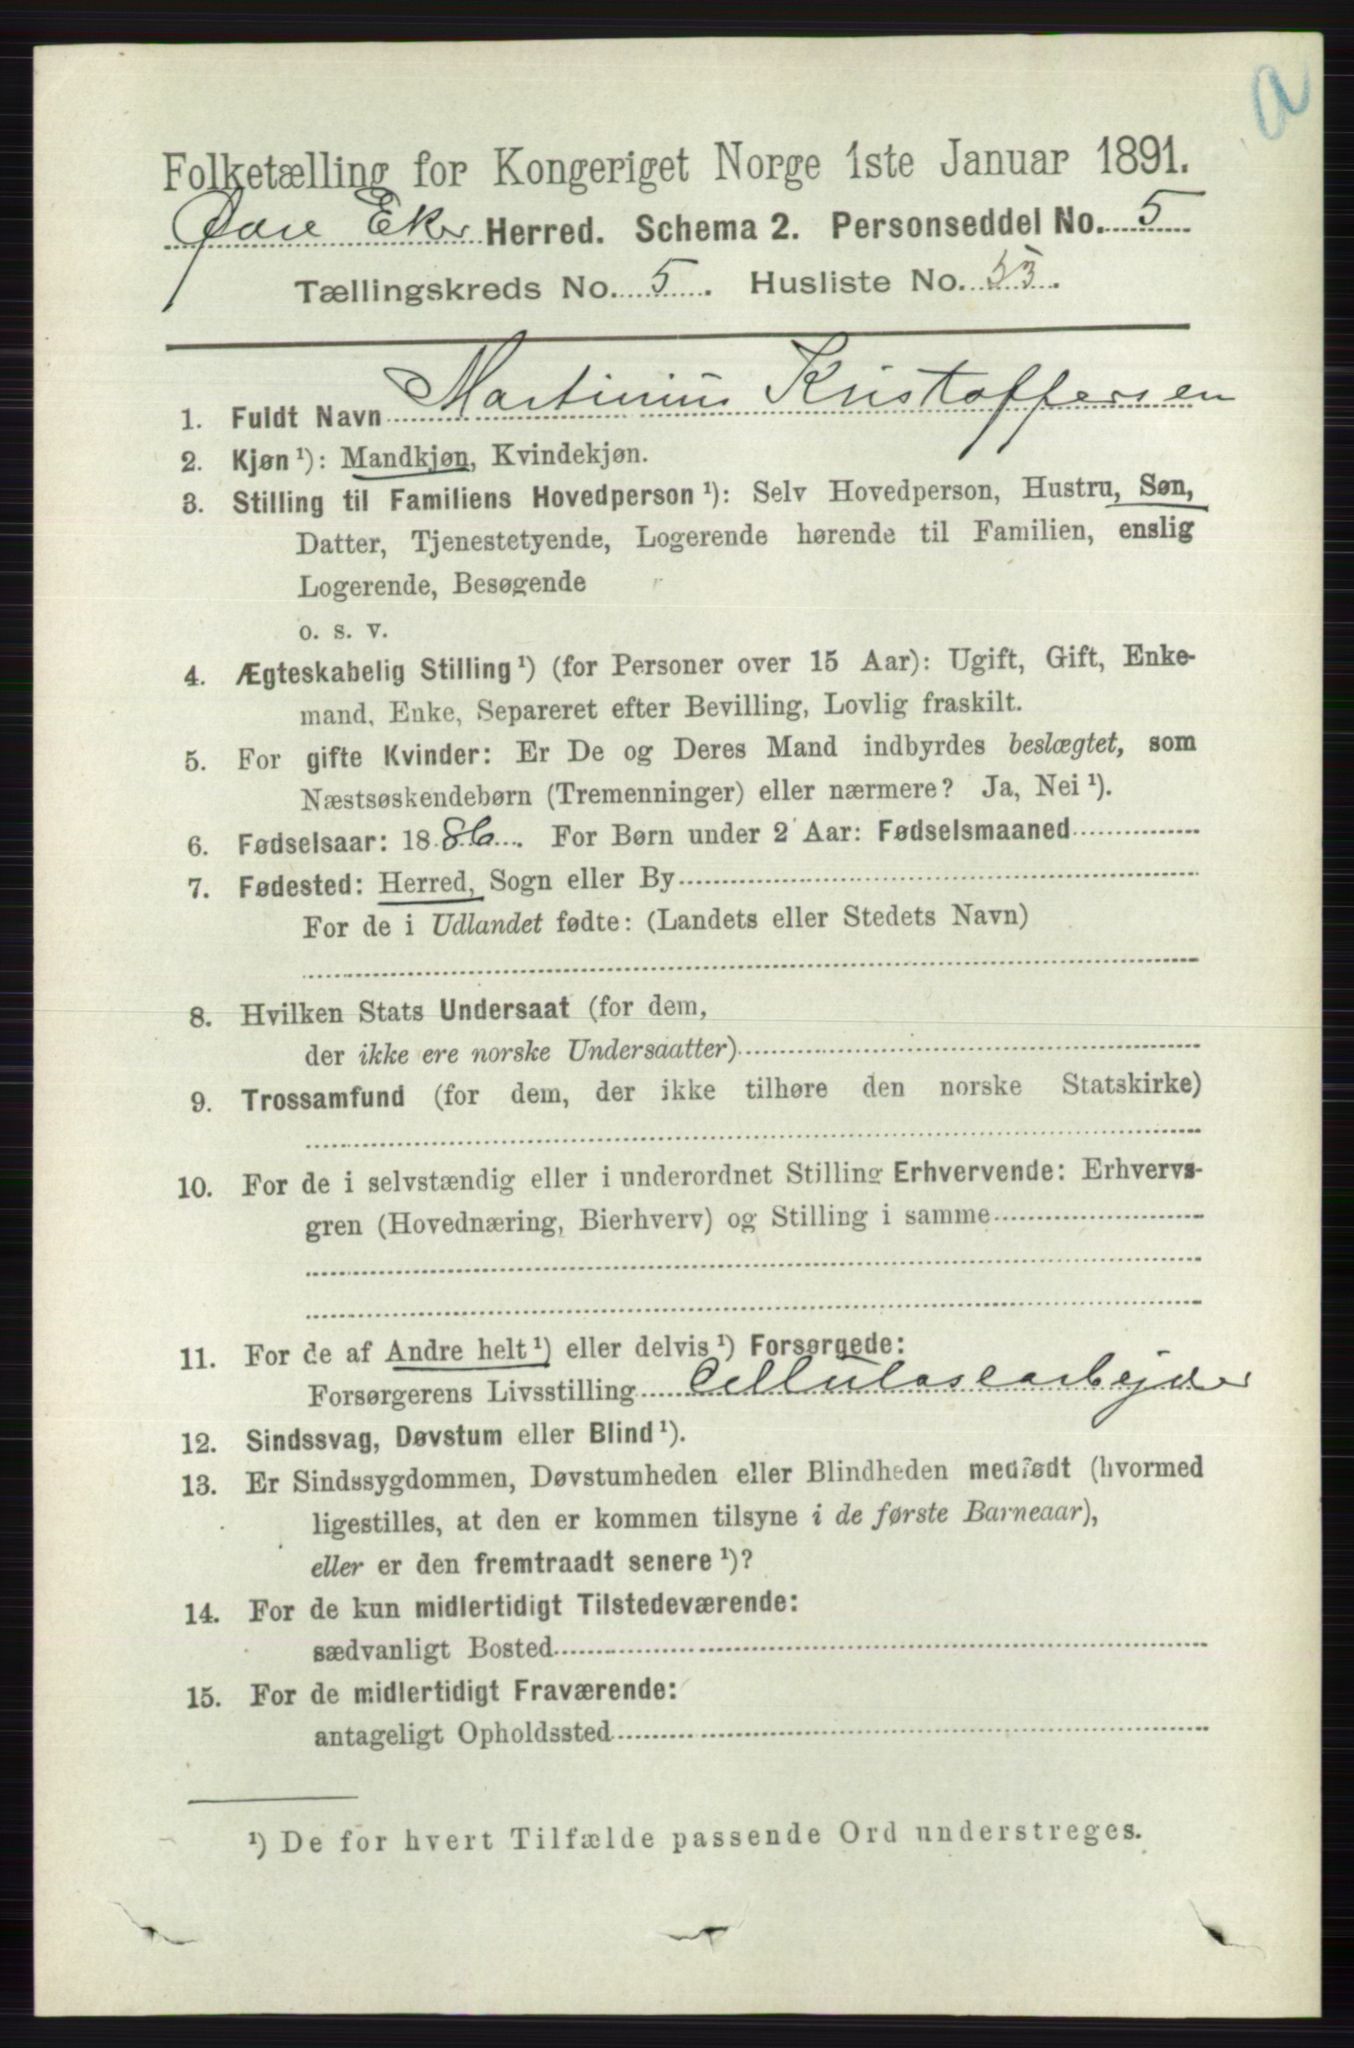 a
Folketælling for Kongeriget Norge 1ste Januar 1891.
Øvre Eker Herred. Schema 2. Personseddel No. 5
Tællingskreds No. 5. Husliste No. 53.
1. Fuldt Navn Martinius Kristoffersen
2. Kjøn ¹): Mandkjøn, Kvindekjøn.
3. Stilling til Familiens Hovedperson ¹): Selv Hovedperson, Hustru, Søn,
Datter, Tjenestetyende, Logerende hørende til Familien, enslig
Logerende, Besøgende
o. s. v.
4. Ægteskabelig Stilling ¹) (for Personer over 15 Aar): Ugift, Gift, Enke-
mand, Enke, Separeret efter Bevilling, Lovlig fraskilt.
5. For gifte Kvinder: Er De og Deres Mand indbyrdes beslægtet, som
Næstsøskendebørn (Tremenninger) eller nærmere? Ja, Nei ¹).
6. Fødselsaar: 1886. For Børn under 2 Aar: Fødselsmaaned
7. Fødested: Herred, Sogn eller By
For de i Udlandet fødte: (Landets eller Stedets Navn)
8. Hvilken Stats Undersaat (for dem,
der ikke ere norske Undersaatter)
9. Trossamfund (for dem, der ikke tilhøre den norske Statskirke)
10. For de i selvstændig eller i underordnet Stilling Erhvervende: Erhvervs-
gren (Hovednæring, Bierhverv) og Stilling i samme
11. For de af Andre helt ¹) eller delvis ¹) Forsørgede:
Forsørgerens Livsstilling Cellulosearbejder
12. Sindssvag, Døvstum eller Blind ¹).
13. Er Sindssygdommen, Døvstumheden eller Blindheden medfødt (hvormed
ligestilles, at den er kommen tilsyne i de første Barneaar),
eller er den fremtraadt senere ¹)?
14. For de kun midlertidigt Tilstedeværende:
sædvanligt Bosted
15. For de midlertidigt Fraværende:
antageligt Opholdssted
¹) De for hvert Tilfælde passende Ord understreges.